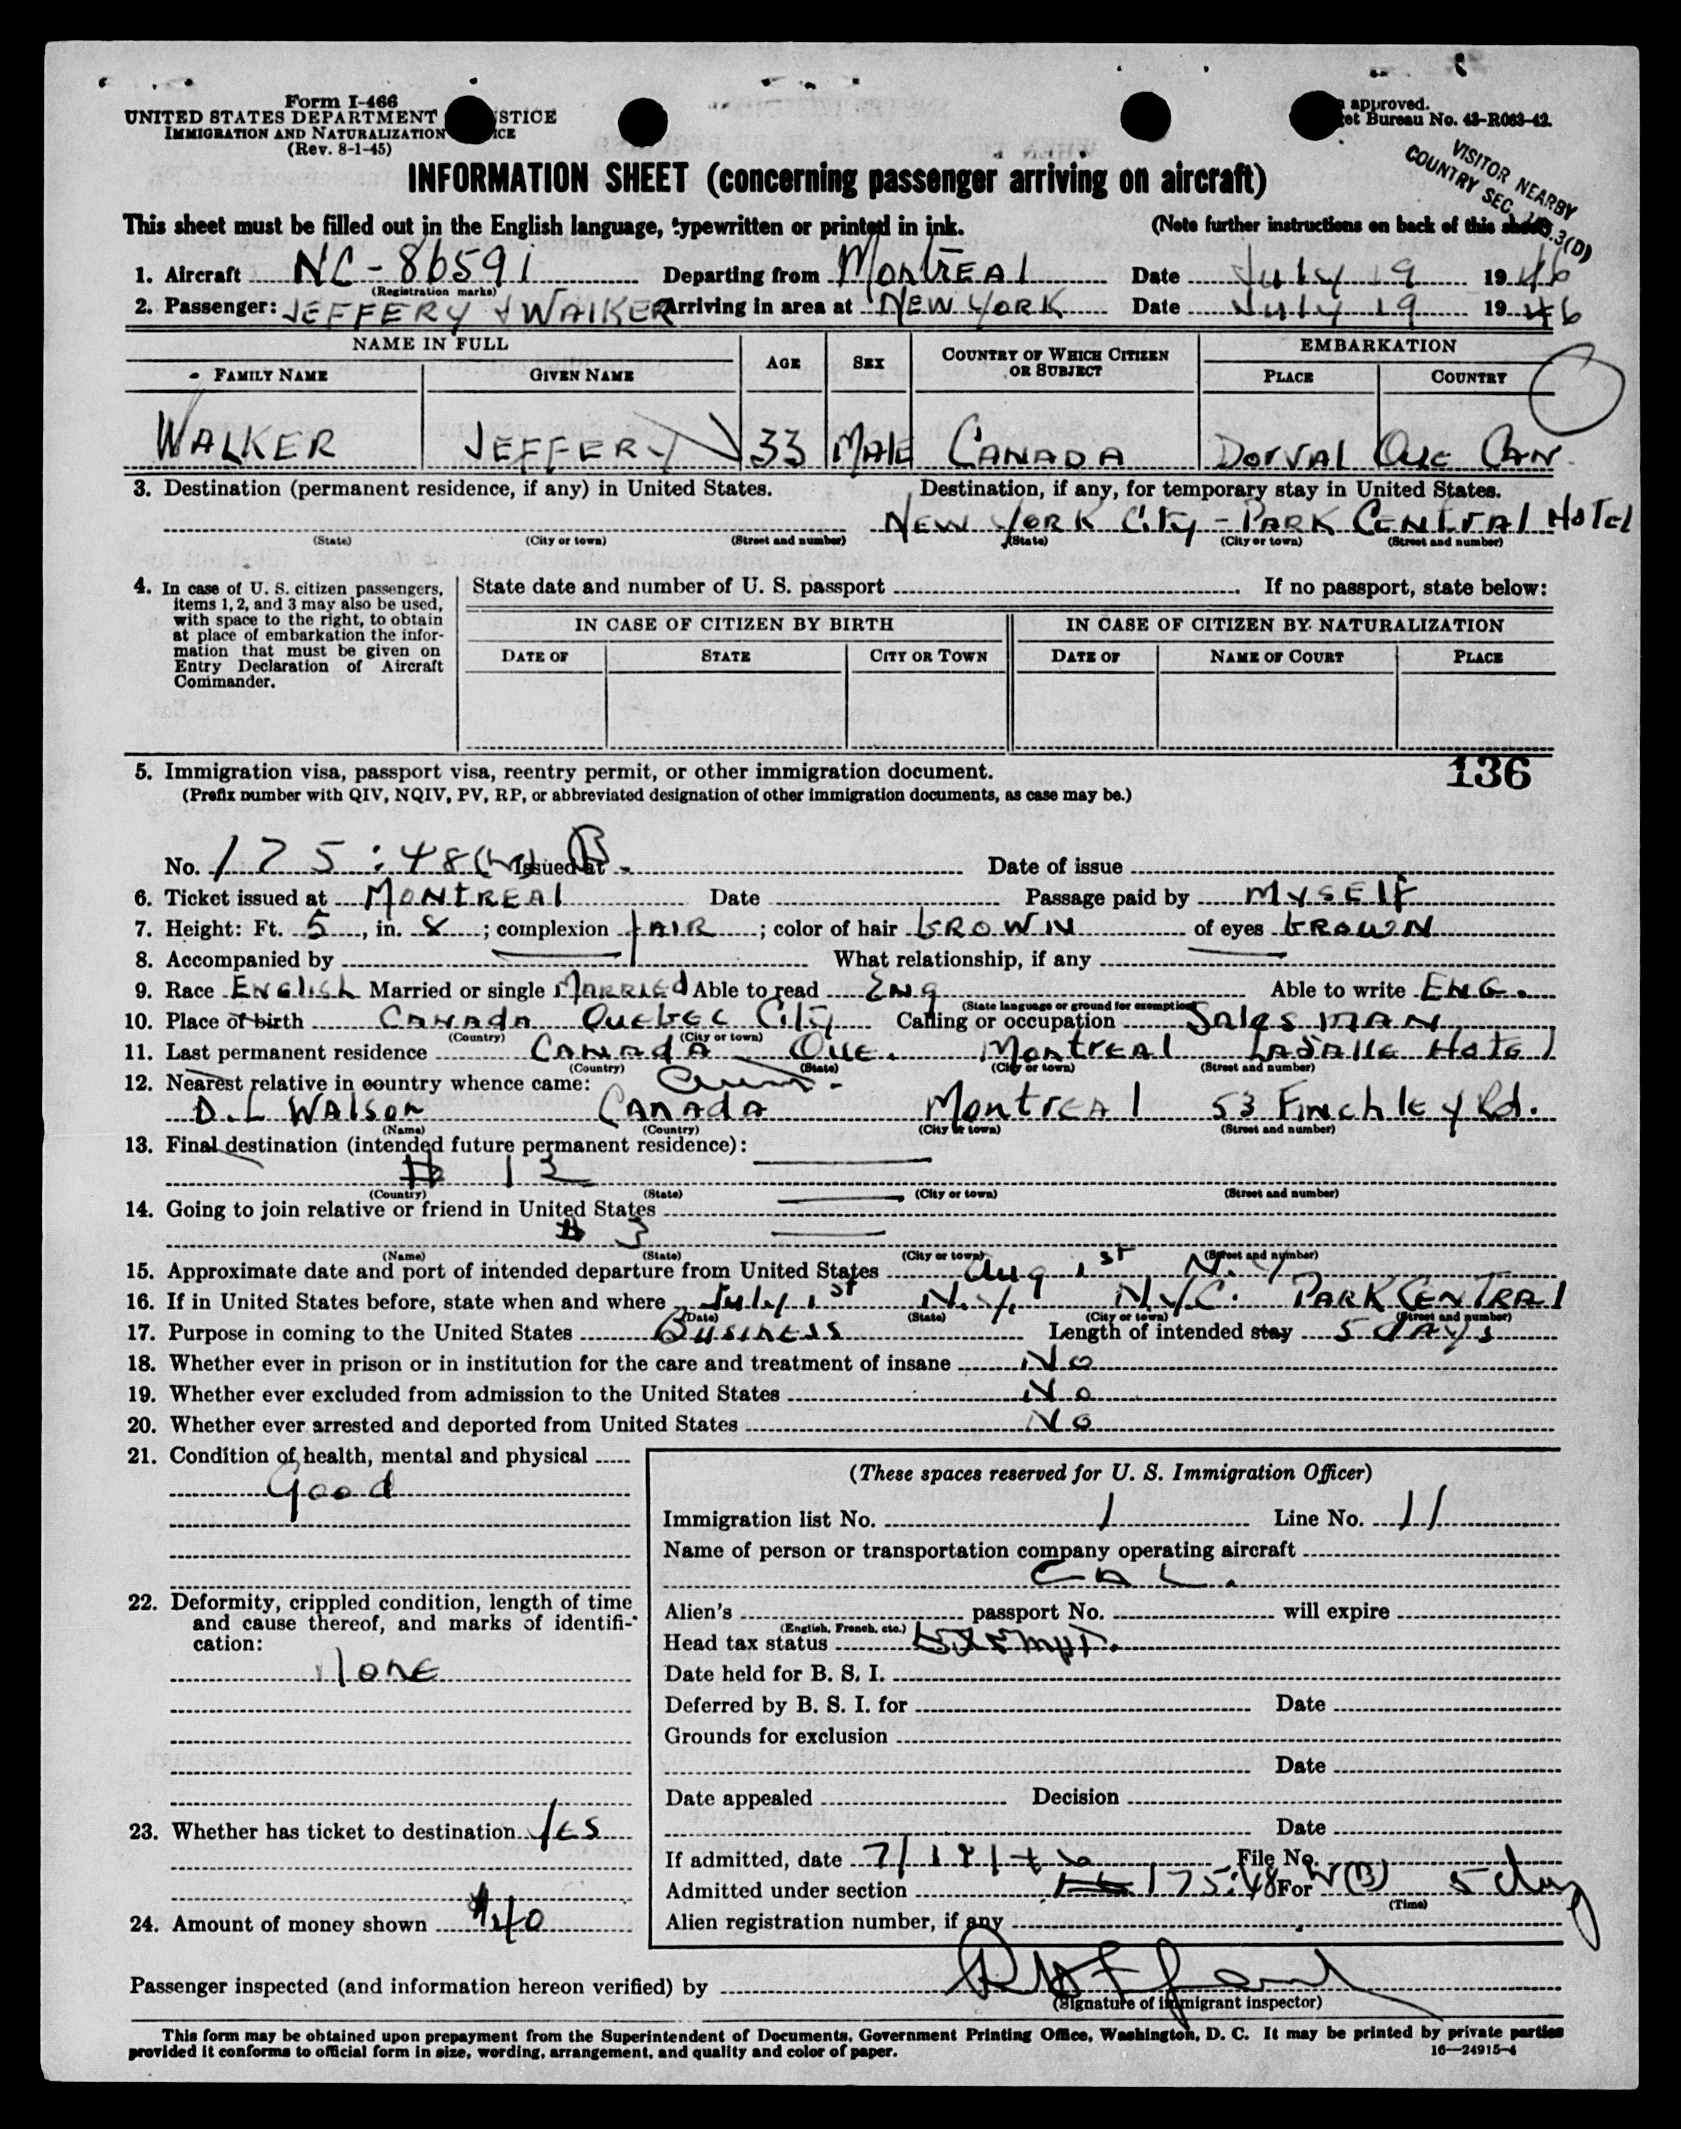 Form I-466
UNITED STATES DEPARTMENT STICE
IMMIGRATION AND NATURALIZATION ICE
(Rev. 8-1-45)
approved.
et Bureau No. 43-R063-42.
VISITOR NEARBY
COUNTRY SEC. 3(D)
INFORMATION SHEET (concerning passenger arriving on aircraft)
This sheet must be filled out in the English language, typewritten or printed in ink. (Note further instructions on back of this sheet)
1. Aircraft NC-86591 Departing from MONTREAL Date July 19 1946
(Registration marks)
2. Passenger: JEFFERY J WALKER Arriving in area at NEW YORK Date July 19 1946
NAME IN FULL AGE SEX COUNTRY OF WHICH CITIZEN OR SUBJECT EMBARKATION
FAMILY NAME GIVEN NAME PLACE COUNTRY
WALKER JEFFERY 33 MALE CANADA DORVAL QUE CAN.
3. Destination (permanent residence, if any) in United States. Destination, if any, for temporary stay in United States.
NEW YORK CITY - PARK CENTRAL HOTEL
(State) (City or town) (Street and number) (State) (City or town) (Street and number)
4. In case of U. S. citizen passengers, items 1, 2, and 3 may also be used, with space to the right, to obtain at place of embarkation the information that must be given on Entry Declaration of Aircraft Commander.
State date and number of U. S. passport If no passport, state below:
IN CASE OF CITIZEN BY BIRTH IN CASE OF CITIZEN BY NATURALIZATION
DATE OF STATE CITY OR TOWN DATE OF NAME OF COURT PLACE
5. Immigration visa, passport visa, reentry permit, or other immigration document. 136
(Prefix number with QIV, NQIV, PV, RP, or abbreviated designation of other immigration documents, as case may be.)
No. 175:48 Issued at Date of issue
6. Ticket issued at MONTREAL Date Passage paid by MYSELF
7. Height: Ft. 5, in. 8; complexion FAIR; color of hair BROWN of eyes BROWN
8. Accompanied by What relationship, if any
9. Race ENGLISH Married or single MARRIED Able to read ENG Able to write ENG.
(State language or ground for exemption)
10. Place of birth CANADA QUEBEC CITY Calling or occupation SALESMAN
(Country) (City or town)
11. Last permanent residence CANADA QUE. MONTREAL LASALLE HOTEL
(Country) (State) (City or town) (Street and number)
12. Nearest relative in country whence came:
D.L WALSON CANADA MONTREAL 53 FINCHLEY Rd.
(Name) (Country) (City or town) (Street and number)
13. Final destination (intended future permanent residence):
# 12
(Country) (State) (City or town) (Street and number)
14. Going to join relative or friend in United States
# 3
(Name) (State) (City or town) (Street and number)
15. Approximate date and port of intended departure from United States Aug 1st N.Y
16. If in United States before, state when and where July 1st N.Y. N.Y.C. PARK CENTRAL
(Date) (State) (City or town) (Street and number)
17. Purpose in coming to the United States BUSINESS Length of intended stay 5 days
18. Whether ever in prison or in institution for the care and treatment of insane No
19. Whether ever excluded from admission to the United States No
20. Whether ever arrested and deported from United States No
21. Condition of health, mental and physical
Good
22. Deformity, crippled condition, length of time and cause thereof, and marks of identification:
NONE
23. Whether has ticket to destination YES
24. Amount of money shown $40
(These spaces reserved for U. S. Immigration Officer)
Immigration list No. 1 Line No. 11
Name of person or transportation company operating aircraft
CAL.
Alien's passport No. will expire
(English, French, etc.)
Head tax status Exempt.
Date held for B. S. I.
Deferred by B. S. I. for Date
Grounds for exclusion
Date
Date appealed Decision
Date
If admitted, date 7/19/46 File No.
Admitted under section 175:48 W(B) For 5 day
(Time)
Alien registration number, if any
Passenger inspected (and information hereon verified) by
(Signature of immigrant inspector)
This form may be obtained upon prepayment from the Superintendent of Documents, Government Printing Office, Washington, D. C. It may be printed by private parties
provided it conforms to official form in size, wording, arrangement, and quality and color of paper. 16—24915-4